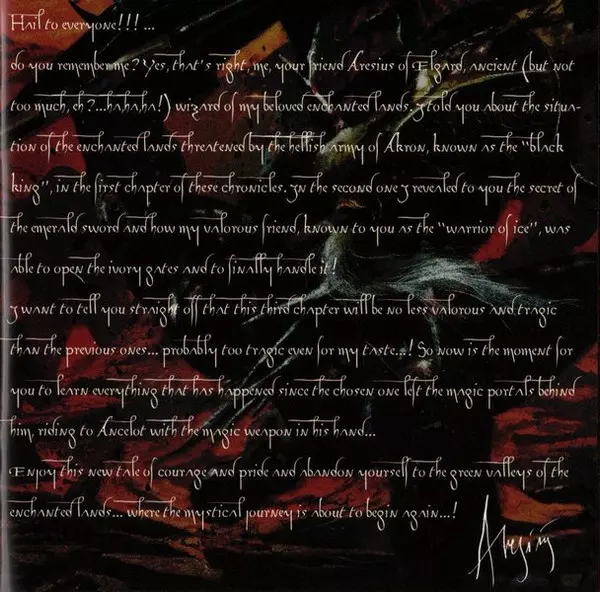 Hail to everyone!!! ...
do you remember me? Yes, that's right, me, your friend Aresius of Elgard, ancient (but not
too much, eh?...ha,ha,ha!) wizard of my beloved enchanted lands. I told you about the situa-
tion of the enchanted lands threatened by the hellish army of Akron, known as the "black
king", in the first chapter of these chronicles. In the second one I revealed to you the secret of
the emerald sword and how my valorous friend, known to you as the "warrior of ice", was
able to open the ivory gates and to finally handle it!
I want to tell you straight off that this third chapter will be no less valorous and tragic
than the previous ones... probably too tragic even for my taste...! So now is the moment for
you to learn everything that has happened since the chosen one left the magic portals behind
him, riding to Ancelot with the magic weapon in his hand...
Enjoy this new tale of courage and pride and abandon yourself to the green valleys of the
enchanted lands... where the mystical journey is about to begin again...!
Aresius